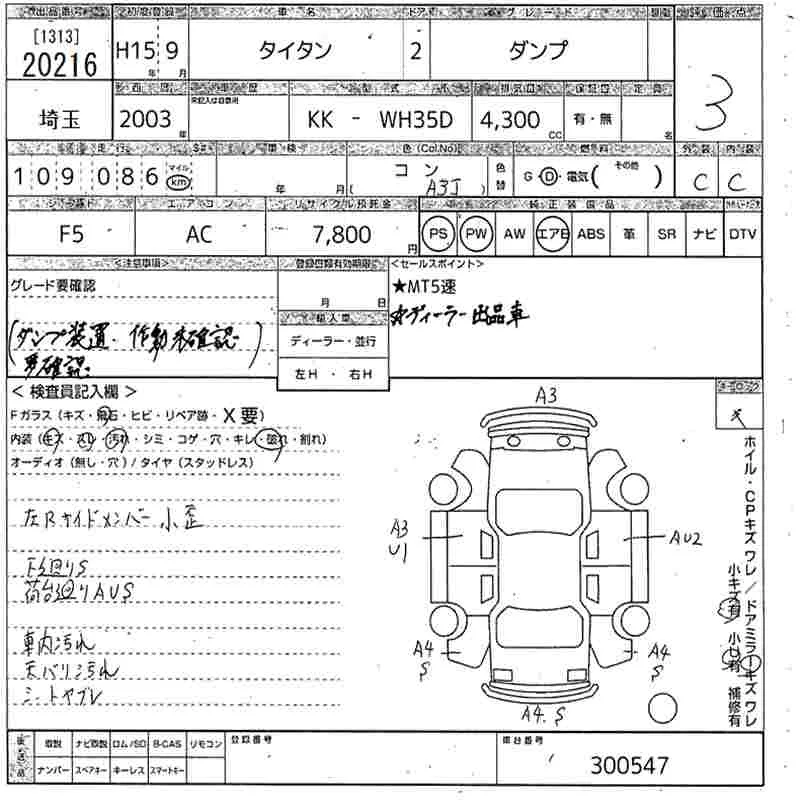 出品番号 初度登録 車名 ドア グレード 評価点
[1313]
20216 H15 年 9 月 タイタン 2 ダンプ 3
埼玉 2003 年 KK - WH35D 4,300 CC 有・無 名
型式 排気量 定員
走行 車検 色(Col.No) 燃料 外装 内装
109086 マイル km 年 月 コン (A3J) 色替 G・D・電気( その他 ) C C
シフト エアコン リサイクル預託金 純正装備品
F5 AC 7,800 円 PS PW AW エアB ABS 革 SR ナビ DTV
<注意事項> 登録書類有効期限 <セールスポイント>
グレード要確認 月 日 ★MT5速
輸入車 ★ディーラー出品車
(ダンプ装置、作動未確認 要確認) ディーラー・並行
左H・右H
<検査員記入欄>
Fガラス(キズ・飛石・ヒビ・リペア跡・X要)
内装(キズ・スレ・汚れ・シミ・コゲ・穴・キレ・破れ・割れ)
オーディオ(無し・穴)/タイヤ(スタッドレス)
左Rサイドメンバー小歪
下廻りS
荷台廻りAUS
車内汚れ
天バリ汚れ
シートヤブレ
A3
A3
U1
AU2
A4
S
A4
S
A4.S
ホイル・CPキズワレ/ドアミラーキズワレ
小キズ有 小U有 補修有
後送品 取説 ナビ取説 ロム/SD B-CAS リモコン 登録番号 車台番号
ナンバー スペアキー キーレス スマートキー 300547